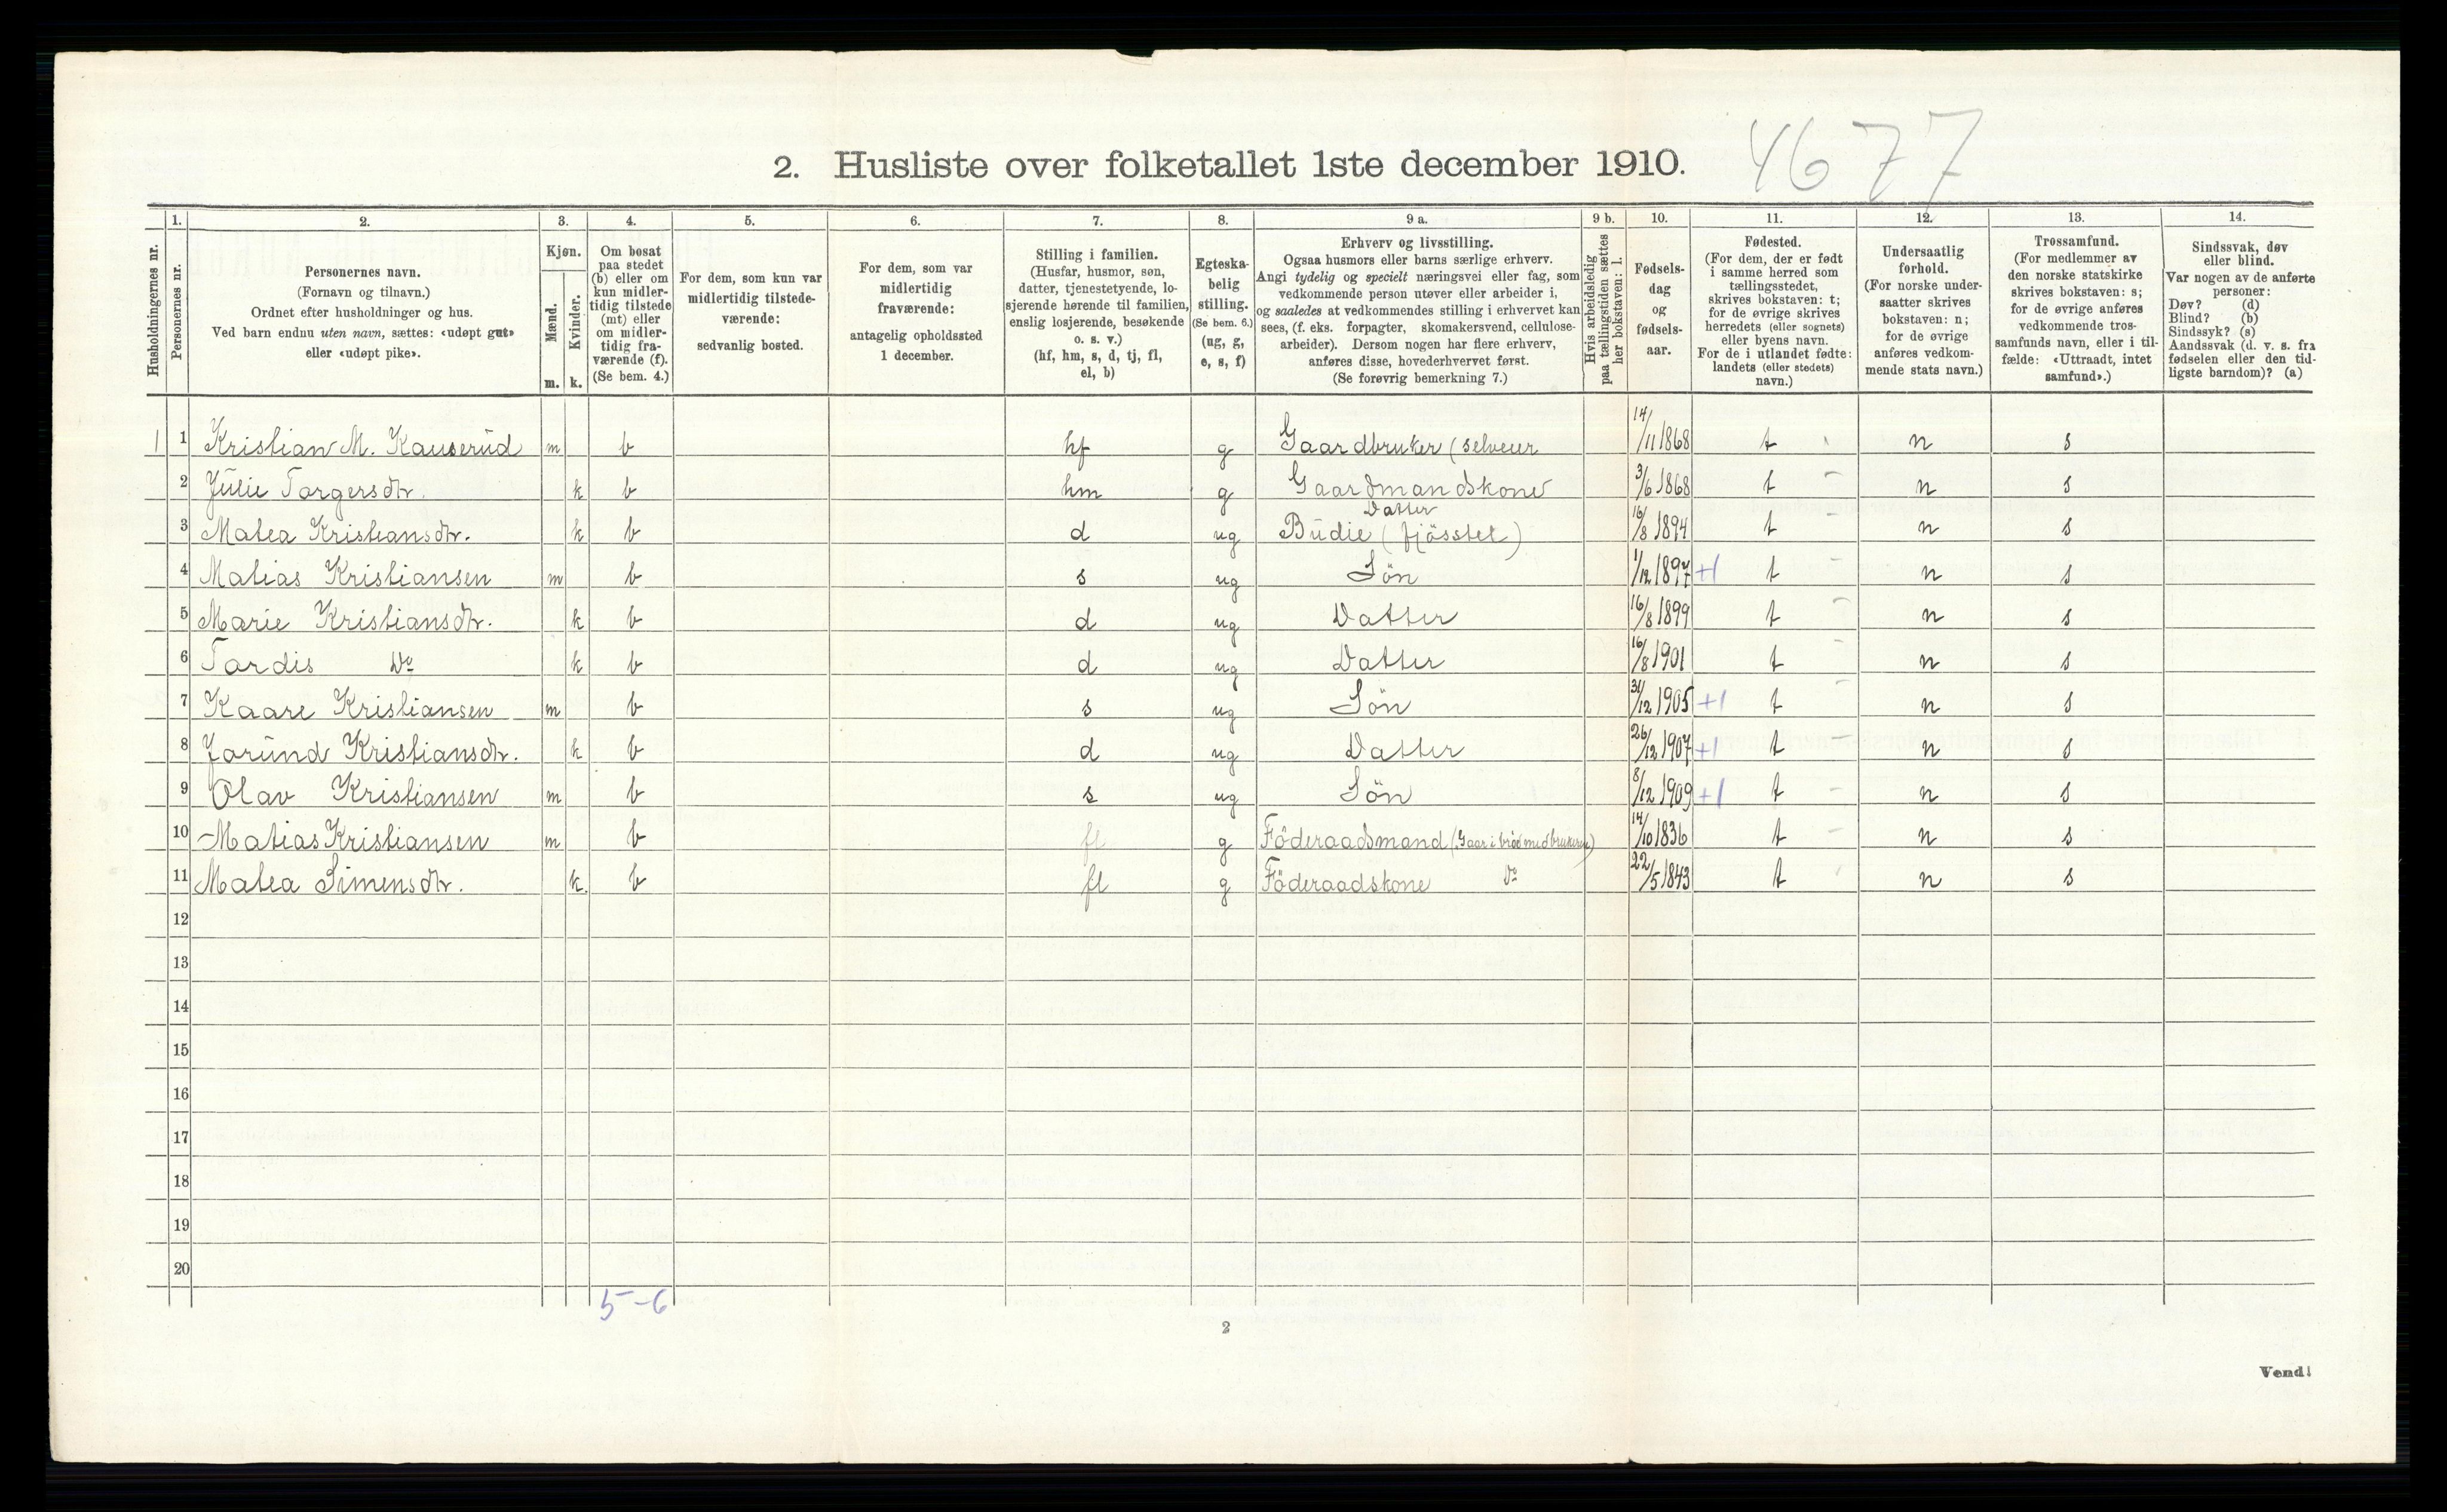 4677
2. Husliste over folketallet 1ste december 1910.
Husholdningernes nr.
1.
Personernes nr.
2.
Personernes navn.
(Fornavn og tilnavn.)
Ordnet efter husholdninger og hus.
Ved barn endnu uten navn, sættes: «udøpt gut»
eller «udøpt pike».
3.
Kjøn.
Mænd.
Kvinder.
m. k.
4.
Om bosat
paa stedet
(b) eller om
kun midler-
tidig tilstede
(mt) eller
om midler-
tidig fra-
værende (f).
(Se bem. 4.)
5.
For dem, som kun var
midlertidig tilstede-
værende:
sedvanlig bosted.
6.
For dem, som var
midlertidig
fraværende:
antagelig opholdssted
1 december.
7.
Stilling i familien.
(Husfar, husmor, søn,
datter, tjenestetyende, lo-
sjerende hørende til familien,
enslig losjerende, besøkende
o. s. v.)
(hf, hm, s, d, tj, fl,
el, b)
8.
Egteska-
belig
stilling.
(Se bem. 6.)
(ug, g,
e, s, f)
9 a.
Erhverv og livsstilling.
Ogsaa husmors eller barns særlige erhverv.
Angi tydelig og specielt næringsvei eller fag, som
vedkommende person utøver eller arbeider i,
og saaledes at vedkommendes stilling i erhvervet kan
sees, (f. eks. forpagter, skomakersvend, cellulose-
arbeider). Dersom nogen har flere erhverv,
anføres disse, hovederhvervet først.
(Se forøvrig bemerkning 7.)
9 b.
Hvis arbeidsledig
paa tællingstiden sættes
her bokstaven: l.
10.
Fødsels-
dag
og
fødsels-
aar.
11.
Fødested.
(For dem, der er født
i samme herred som
tællingsstedet,
skrives bokstaven: t;
for de øvrige skrives
herredets (eller sognets)
eller byens navn.
For de i utlandet fødte:
landets (eller stedets)
navn.)
12.
Undersaatlig
forhold.
(For norske under-
saatter skrives
bokstaven: n;
for de øvrige
anføres vedkom-
mende stats navn.)
13.
Trossamfund.
(For medlemmer av
den norske statskirke
skrives bokstaven: s;
for de øvrige anføres
vedkommende tros-
samfunds navn, eller i til-
fælde: «Uttraadt, intet
samfund».)
14.
Sindssvak, døv
eller blind.
Var nogen av de anførte
personer:
Døv? (d)
Blind? (b)
Sindssyk? (s)
Aandssvak (d. v. s. fra
fødselen eller den tid-
ligste barndom)? (a)
1 1 Kristian M. Kauserud m b hf g Gaardbruker (selveier 14/11 1868 t n s
2 Julie Torgersdtr. k b hm g Gaardmandskone 3/6 1868 t n s
Datter
3 Matea Kristiansdtr. k b d ug Budie (fjösstel) 16/8 1894 t n s
4 Matias Kristiansen m b s ug Sön 1/12 1897 +1 t n s
5 Marie Kristiansdtr. k b d ug Datter 16/8 1899 t n s
6 Tordis Do k b d ug Datter 16/8 1901 t n s
7 Kaare Kristiansen m b s ug Sön 31/12 1905 +1 t n s
8 Jorund Kristiansdtr. k b d ug Datter 26/12 1907 +1 t n s
9 Olav Kristiansen m b s ug Sön 8/12 1909 +1 t n s
10 Matias Kristiansen m b fl g Föderaadsmand (Gaar i bröd med brukeren) 14/10 1836 t n s
11 Matea Simensdtr. k. b fl g Föderaadskone Do 22/5 1843 t n s
12
13
14
15
16
17
18
19
20
5-6
2
Vend!